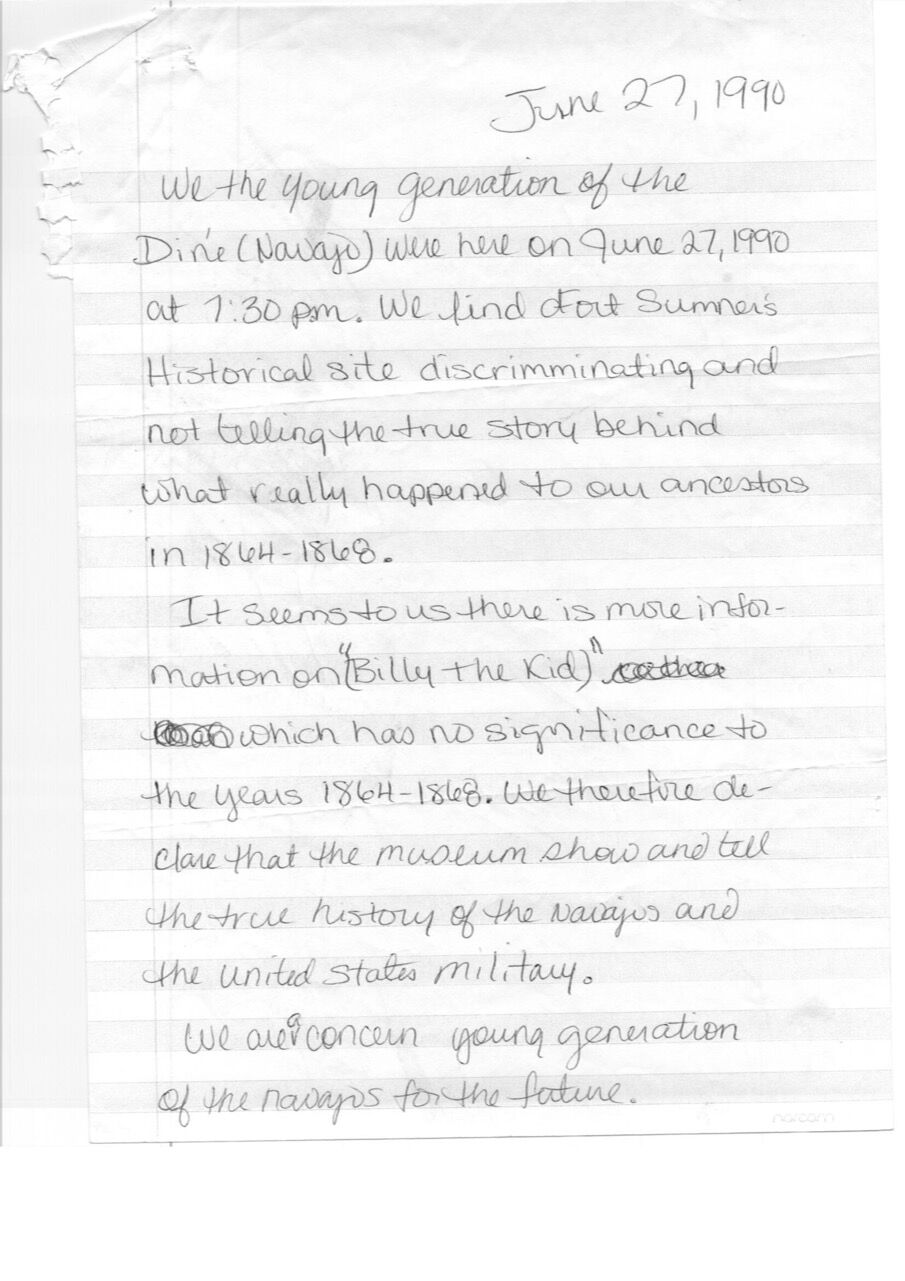 June 27, 1990
We the young generation of the
Diné (Navajo) were here on June 27, 1990
at 7:30 pm. We find Fort Sumner's
Historical site discrimminating and
not telling the true story behind
what really happened to our ancestors
in 1864-1868.
It seems to us there is more infor-
mation on "(Billy the Kid)"
which has no significance to
the years 1864-1868. We therefore de-
clare that the museum show and tell
the true history of the Navajos and
the United States military.
We are a concern young generation
of the navajos for the future.
norcom